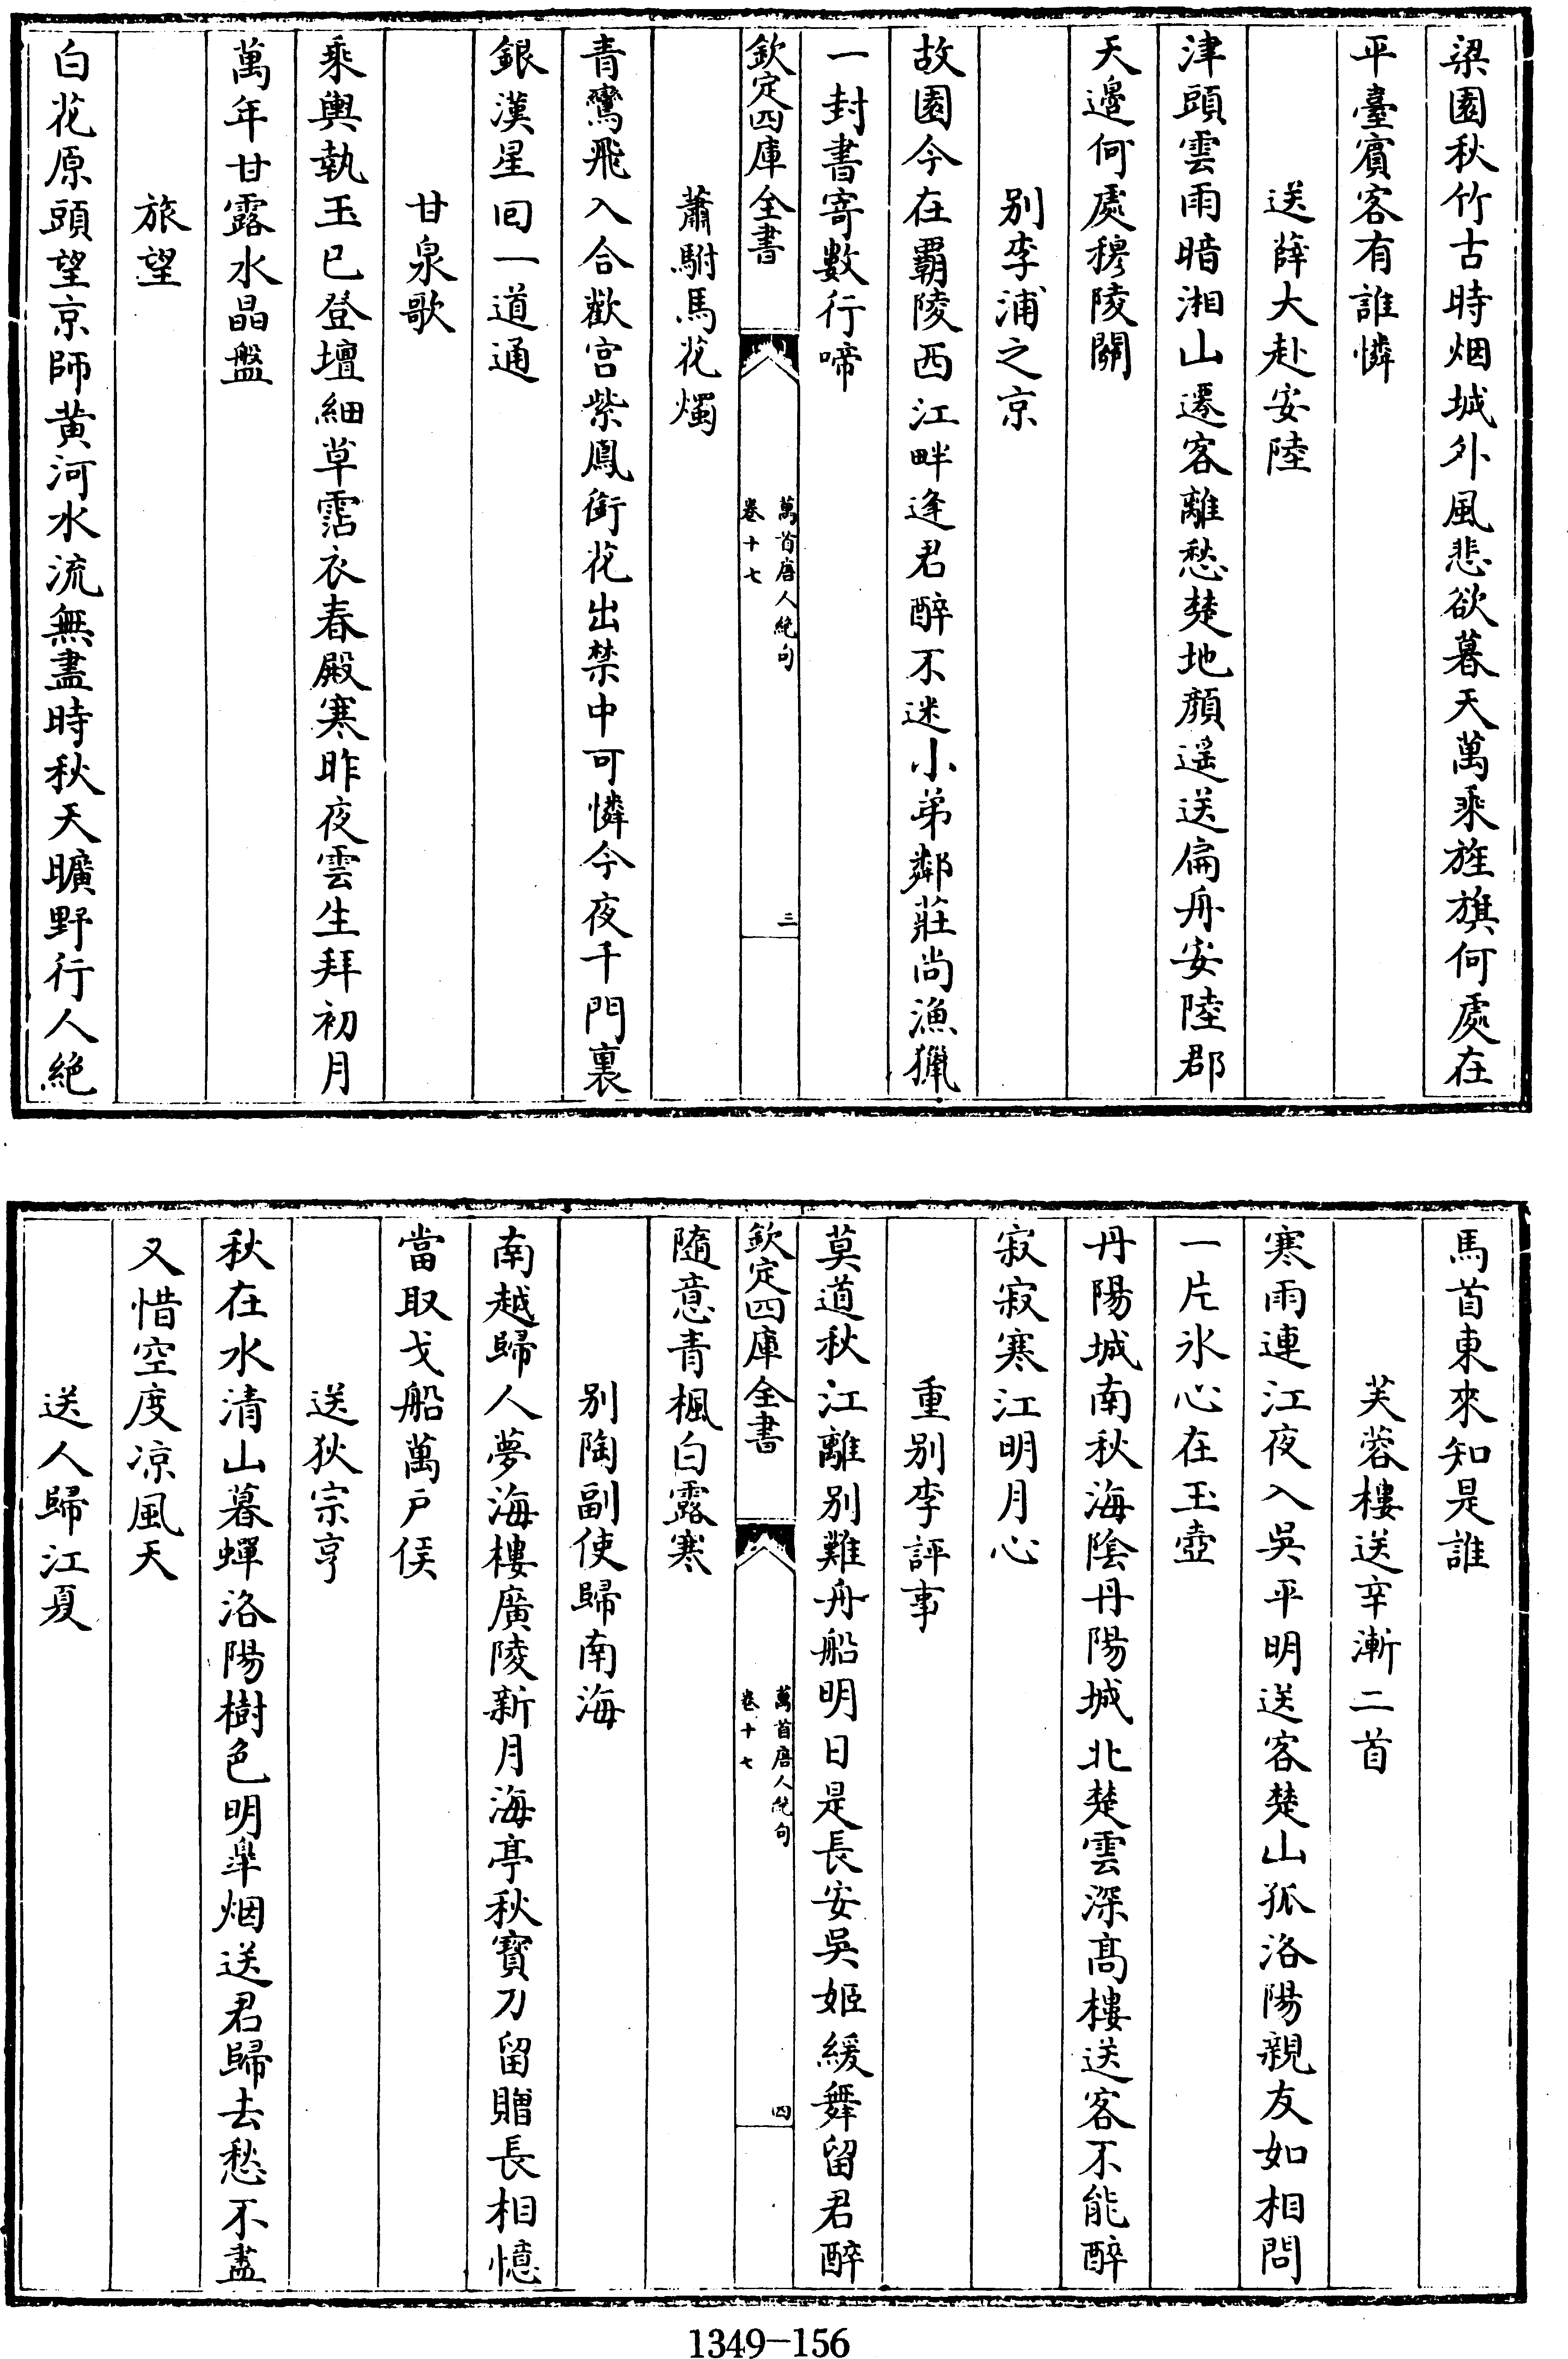 梁園秋竹古時烟城外風悲欲暮天萬乘旌旗何處在
平臺賓客有誰憐
送薛大赴安陸
津頭雲雨暗湘山遷客離愁楚地顔遥送扁舟安陸郡
天邊何處穆陵關
别李浦之京
故園今在覇陵西江畔逢君醉不迷小弟鄰莊尚漁獵
一封書寄數行啼
欽定四庫全書
萬首唐人絶句
卷十七
三
蕭駙馬花燭
青鸞飛入合歡宫紫鳳銜花出禁中可憐今夜千門裏
銀漢星回一道通
甘泉歌
乘輿執玉已登壇細草霑衣春殿寒昨夜雲生拜初月
萬年甘露水晶盤
旅望
白花原頭望京師黄河水流無盡時秋天曠野行人絶
馬首東來知是誰
芙蓉樓送辛漸二首
寒雨連江夜入吳平明送客楚山孤洛陽親友如相問
一片氷心在玉壺
丹陽城南秋海陰丹陽城北楚雲深髙樓送客不能醉
寂寂寒江明月心
重别李評事
莫道秋江離别難舟船明日是長安吳姬緩舞留君醉
欽定四庫全書
萬首唐人絶句
卷十七
四
隨意青楓白露寒
别陶副使歸南海
南越歸人夢海樓廣陵新月海亭秋寳刀留贈長相憶
當取戈船萬户侯
送狄宗亨
秋在水清山暮蟬洛陽樹色明臯烟送君歸去愁不盡
又惜空度凉風天
送人歸江夏
1349-156